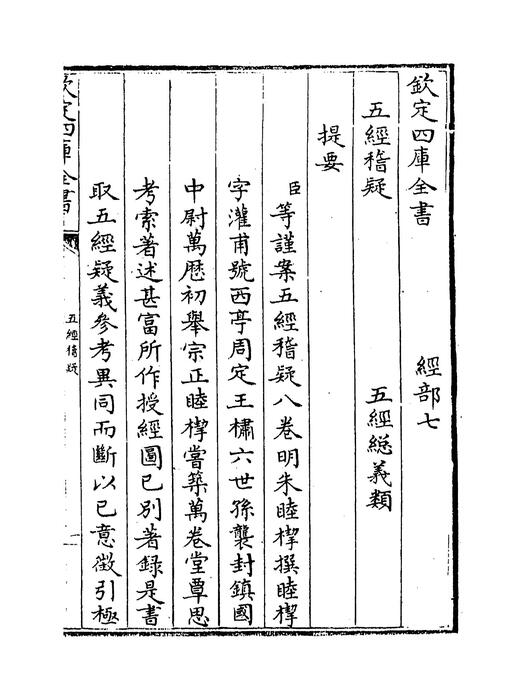 欽定四庫全書　經部七
五經稽疑　五經緫義類
提要
臣等謹案五經稽疑八卷明朱睦㮮撰睦㮮
字灌甫號西亭周定王橚六世孫襲封鎮國
中尉萬歴初舉宗正睦㮮嘗築萬卷堂覃思
考索著述甚富所作授經圖已别著録是書
取五經疑義參考異同而斷以已意徵引極
欽定四庫全書
五經稽疑
一